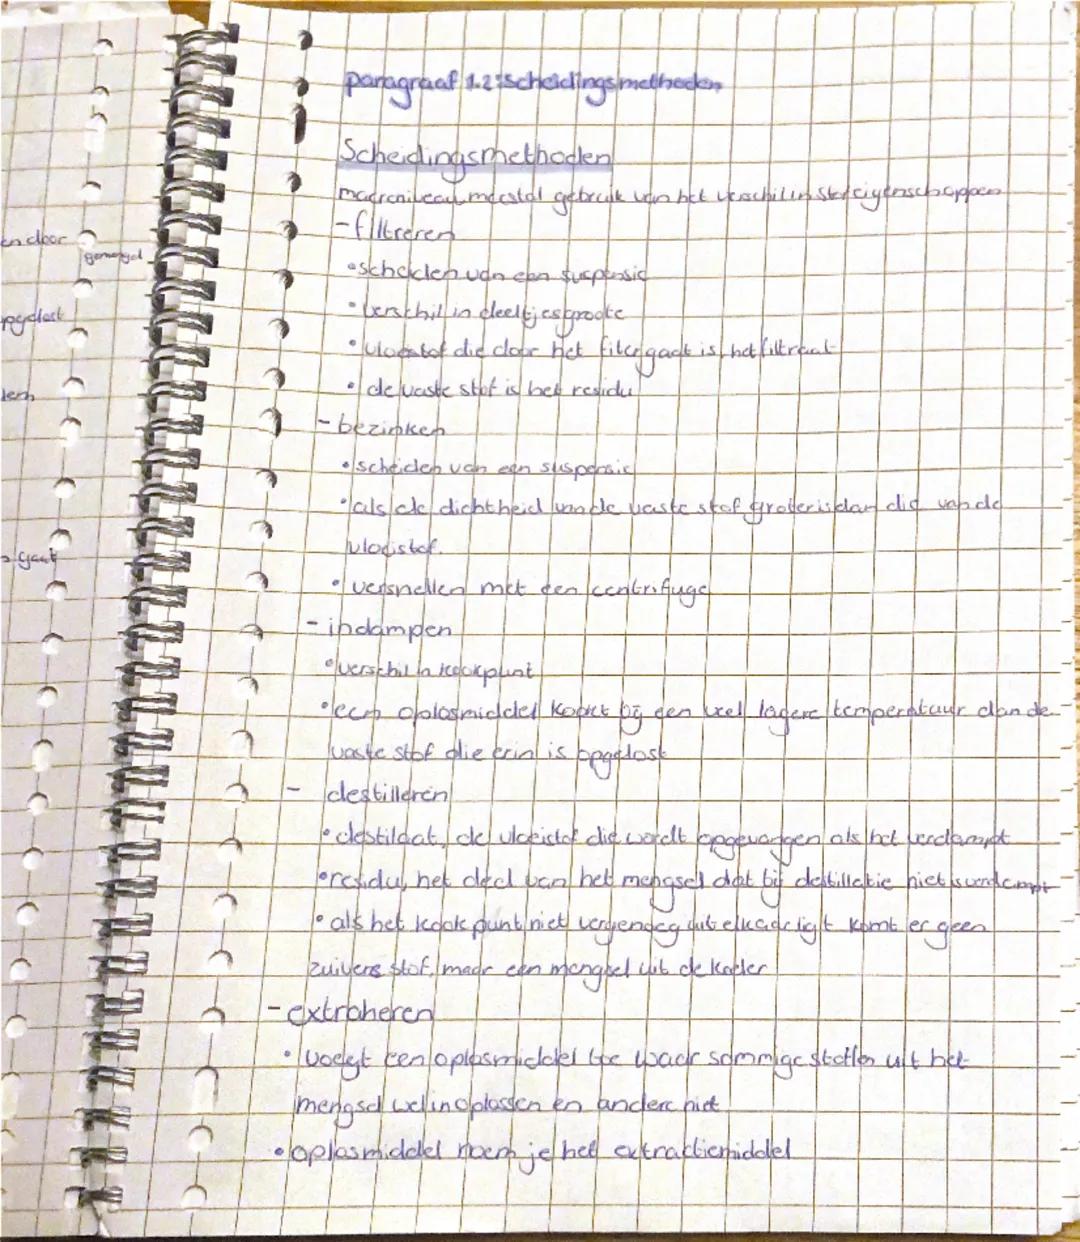 paragraaf 1.2: scheidingsmethoden
Scheidingsmethoden
macroniveau, meestal gebruik van het verschil in stofeigenschappen
- filtreren
• scheiden van een suspensie
• verschil in deeltjesgroote
• vloeistof die door het filter gaat is het filtraat
• de vaste stof is het residu
- bezinken
• scheiden van een suspensie
• als de dichtheid van de vaste stof groter is dan die van de
vloeistof.
• versnellen met een centrifuge
- indampen
• verschil in kookpunt
• een oplosmiddel kookt bij een veel lagere temperatuur dan de
vaste stof die erin is opgelost
- destilleren
• destilaat, de vloeistof die wordt opgevangen als het verdampt
• residu, het deel van het mengsel dat bij destillatie niet is verdampt
• als het kookpunt niet ver genoeg uit elkaar ligt komt er geen
zuivere stof, maar een mengsel uit de koeler
- extraheren
• voegt een oplosmiddel toe waar sommige stoffen uit het
mengsel wel in oplossen en andere niet
• oplosmiddel noem je het extractiemiddel
en door
gemengd
opgelost
gaat